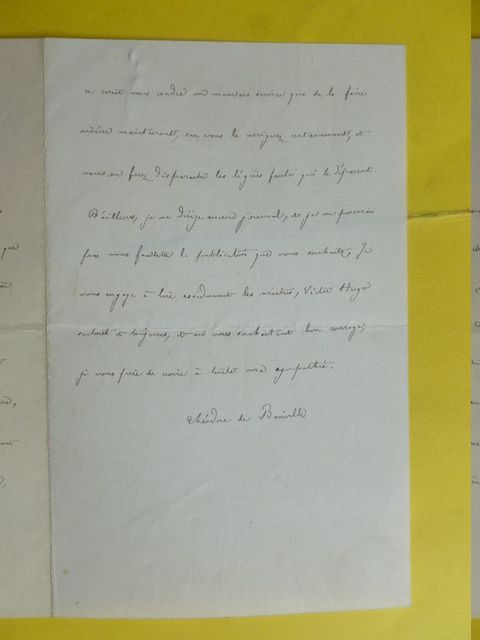 ce serait vous rendre un mauvais service que de le faire
insérer maintenant, car vous le corrigerez certainement, et
vous en ferez disparaître les légères fautes qui le déparent.
D'ailleurs, je ne dirige aucun journal, et je ne pourrais
pas vous faciliter la publication que vous souhaitez. Je
vous engage à lire assidûment les maîtres, Victor Hugo
surtout et toujours, et en vous souhaitant bon courage,
je vous prie de croire à toute ma sympathie.
Théodore de Banville
que